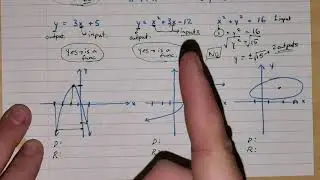 y = 3x + 5
output inputs
Yes → is a func.
y = x² + 3x - 12
output inputs
Yes → is a func.
x² + y² = 16 1 input
1² + y² = 16
√y² = √15
y = ±√15 2 outputs
No
D:
R:
D:
R:
D:
R: